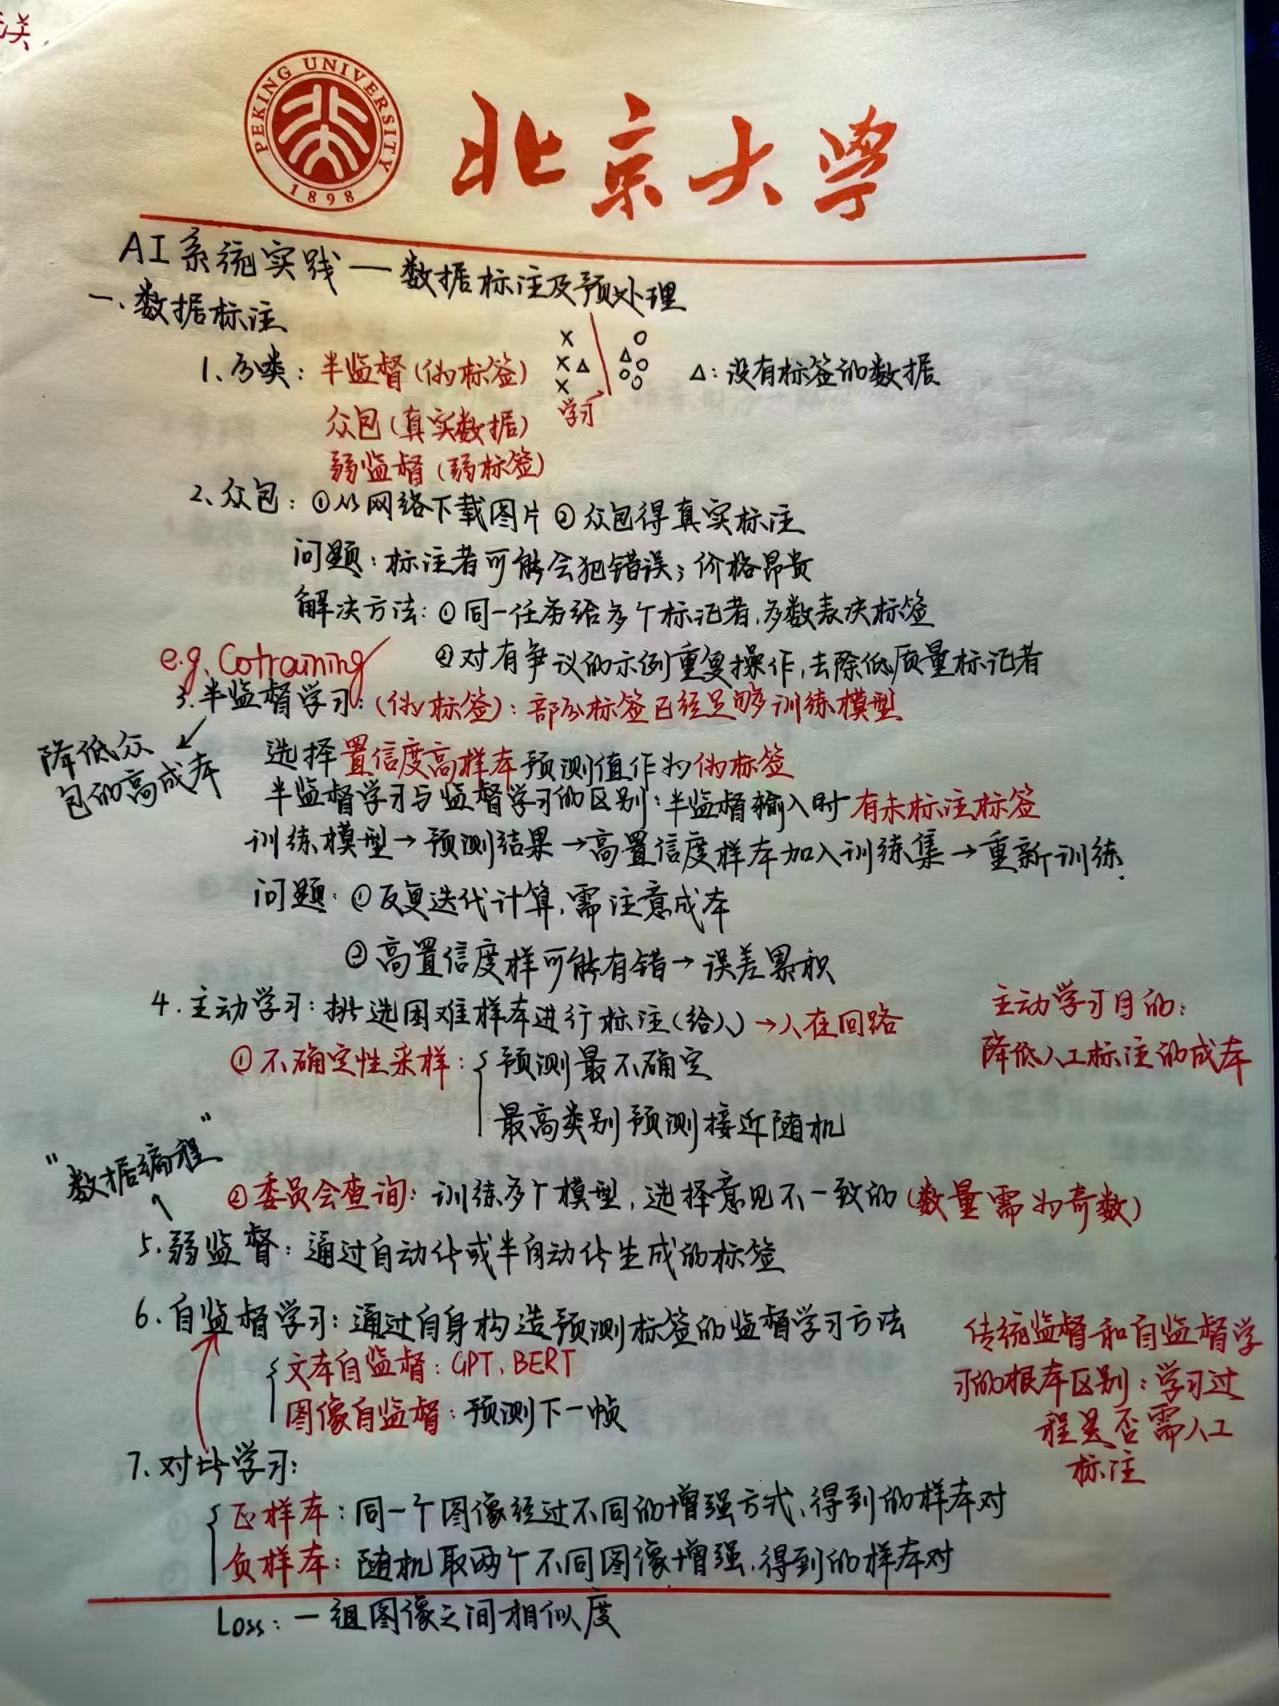 PEKING UNIVERSITY
1898
北京大学
AI系统实践——数据标注及预处理
一、数据标注
1、分类：半监督（伪标签）
学习
△：没有标签的数据
众包（真实数据）
弱监督（弱标签）
2、众包：①从网络下载图片 ②众包得真实标注
问题：标注者可能会犯错误；价格昂贵
解决方法：①同一任务给多个标记者，多数表决标签
②对有争议的示例重复操作，去除低质量标记者
e.g. Cotraining
3、半监督学习：（伪标签）：部分标签已经足够训练模型
降低众
包的高成本
选择置信度高样本预测值作为伪标签
半监督学习与监督学习的区别：半监督输入时有未标注标签
训练模型→预测结果→高置信度样本加入训练集→重新训练.
问题：①反复迭代计算，需注意成本
②高置信度样可能有错→误差累积
4、主动学习：挑选困难样本进行标注（给人）→人在回路
主动学习目的：
降低人工标注的成本
①不确定性采样：{预测最不确定
最高类别预测接近随机
②委员会查询：训练多个模型，选择意见不一致的（数量需为奇数）
"数据编程"
5、弱监督：通过自动化或半自动化生成的标签
6、自监督学习：通过自身构造预测标签的监督学习方法
{文本自监督：GPT、BERT
图像自监督：预测下一帧
传统监督和自监督学
习的根本区别：学习过
程是否需人工
标注
7、对比学习：
{正样本：同一个图像经过不同的增强方式，得到的样本对
负样本：随机取两个不同图像增强，得到的样本对
Loss：一组图像之间相似度